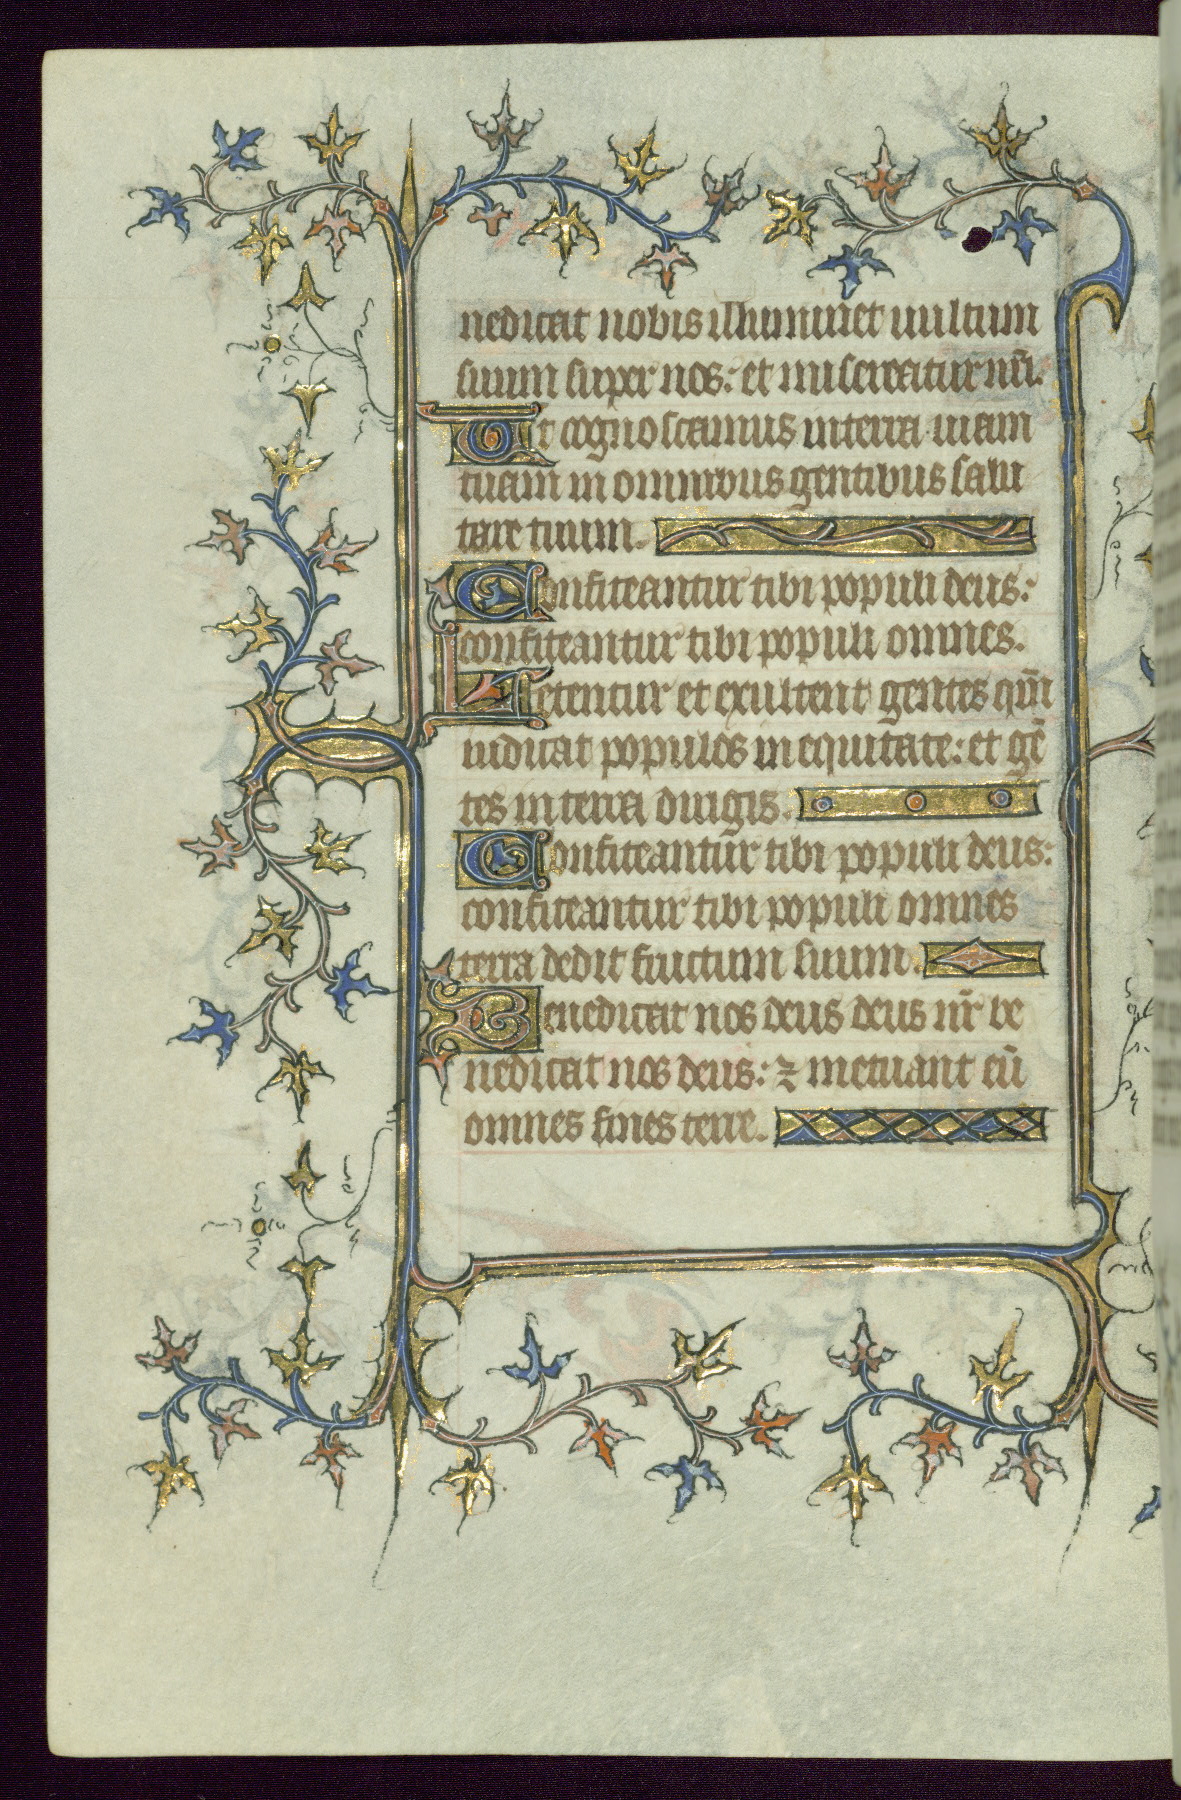 nedicat nobis illuminet uultum
suum super nos: et misereatur nr̄i.
Ut cognoscamus in terra uiam
tuam in omnibus gentibus salu
tare tuum.
Confiteantur tibi populi deus:
confiteantur tibi populi omnes.
Letentur et exultent gentes qm̄
iudicat populos in equitate: et gē
tes in terra dirigis.
Confiteantur tibi populi deus:
confiteantur tibi populi omnes
terra dedit fructum suum.
Benedicat nos deus deus nr̄ be
nedicat nos deus: ⁊ metuant eū
omnes fines terre.